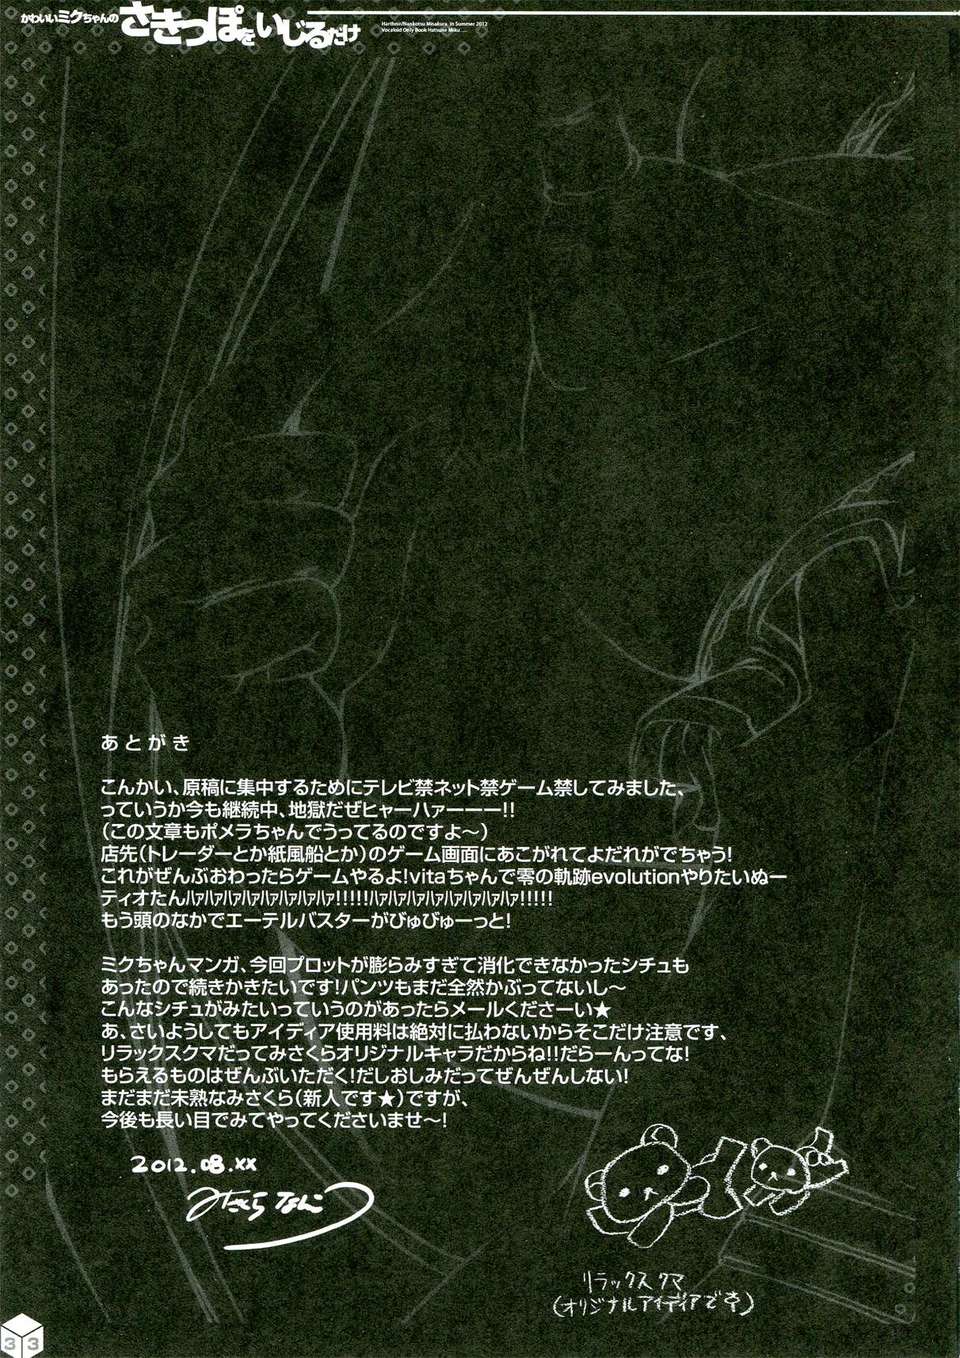 かわいいミクちゃんのさきっぽをいじるだけ
Harthnir/Nankotsu Misakura in Summer 2012
Vocaloid Only Book Hatsune Miku .....
あとがき
こんかい、原稿に集中するためにテレビ禁ネット禁ゲーム禁してみました、
っていうか今も継続中、地獄だぜヒャーハァーーー!!
(この文章もポメラちゃんでうってるのですよ～)
店先(トレーダーとか紙風船とか)のゲーム画面にあこがれてよだれがでちゃう!
これがぜんぶおわったらゲームやるよ!vitaちゃんで零の軌跡evolutionやりたいぬー
ティオたんﾊｧﾊｧﾊｧﾊｧﾊｧﾊｧﾊｧﾊｧ!!!!!ﾊｧﾊｧﾊｧﾊｧﾊｧﾊｧﾊｧﾊｧ!!!!!
もう頭のなかでエーテルバスターがびゅびゅーっと!
ミクちゃんマンガ、今回プロットが膨らみすぎて消化できなかったシチュも
あったので続きかきたいです!パンツもまだ全然かぶってないし～
こんなシチュがみたいっていうのがあったらメールくださーい★
あ、さいようしてもアイディア使用料は絶対に払わないからそこだけ注意です、
リラックスクマだってみさくらオリジナルキャラだからね!!だらーんってな!
もらえるものはぜんぶいただく!だしおしみだってぜんぜんしない!
まだまだ未熟なみさくら(新人です★)ですが、
今後も長い目でみてやってくださいませ～!
2012.08.xx
みさくら なんこつ
リラックスクマ
(オリジナルアイディアです)
33